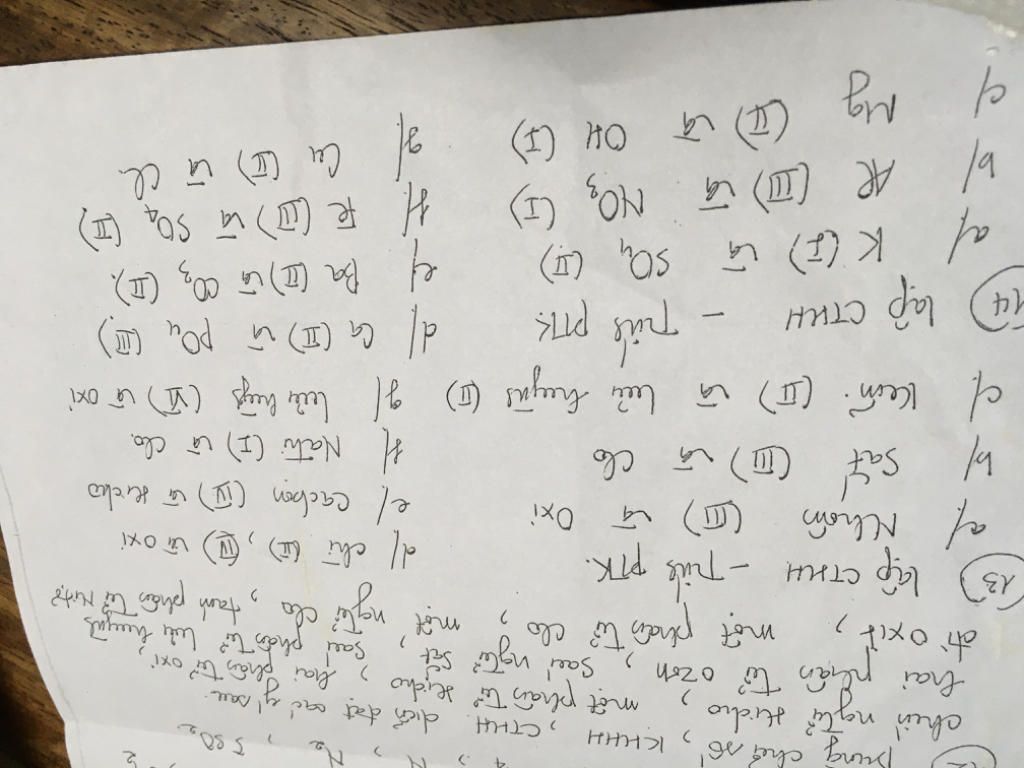 12
4 , N , N2 , 5SO2
Dùng chữ số, KHHH, CTHH diễn đạt các ý sau:
chín ngtử Hidro, một phân tử Hidro, hai phân tử oxi,
hai phân tử ozon, sáu ngtử sắt, sáu phân tử lưu huỳnh
đi oxit, một phân tử clo, một ngtử clo, tám phân tử Nitơ
13 lập CTHH – Tính PTK.
a/ Nhôm (III) và Oxi d/ chì (II), (IV) và oxi
b/ Sắt (III) và clo e/ cacbon (IV) và Hidro
c/ Kẽm (II) và lưu huỳnh (II) f/ Natri (I) và clo.
g/ lưu huỳnh (VI) và oxi
14 lập CTHH – Tính PTK d/ Ca (II) và PO4 (III)
a/ K (I) và SO4 (II) e/ Ba (II) và CO3 (II).
b/ Al (III) và NO3 (I) f/ Fe (III) và SO4 (II)
c/ Mg (II) và OH (I) g/ Cu (II) và Cl